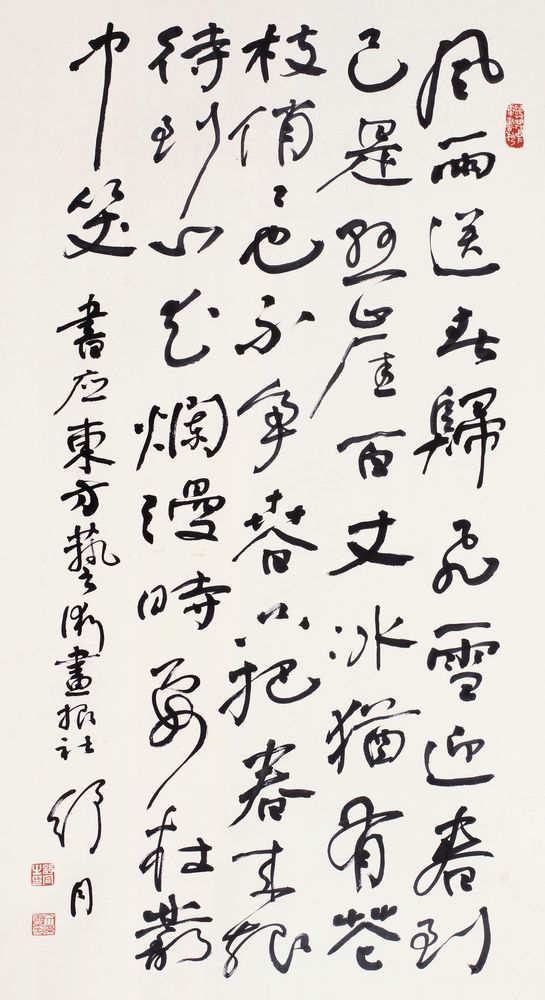 风雨送春歸飛雪迎春到
已是懸崖百丈冰猶有花
枝俏〻也不争春只把春来报
待到山花爛漫時在叢
中笑 書应東方藝術畫报社